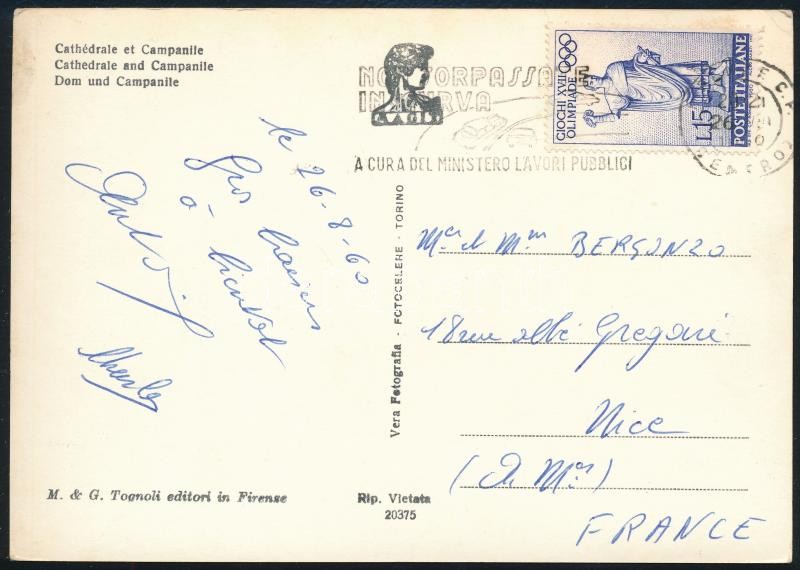 Cathédrale et Campanile
Cathedrale and Campanile
Dom und Campanile
NON SORPASSATE
IN CURVA
A CURA DEL MINISTERO LAVORI PUBBLICI
GIOCHI XVII
OLIMPIADE
L.15
POSTE ITALIANE
le 26-8-60
Gros baisers
à bientôt
Vera Fotografia - FOTOCELERE - TORINO
Mr et Mme BERGONZO
18 rue abbé Gregoire
Nice
(A. Mes)
FRANCE
M. & G. Tognoli editori in Firenze
Rip. Vietata
20375